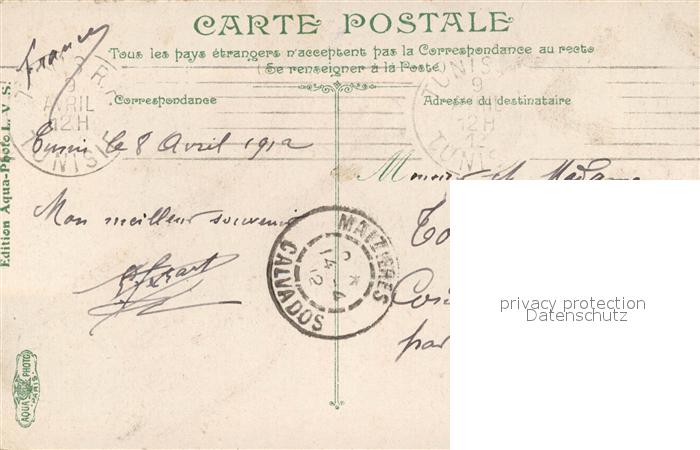 CARTE POSTALE
Tous les pays étrangers n'acceptent pas la Correspondance au recto
(Se renseigner à la Poste)
France
Correspondance
Adresse du destinataire
9
AVRIL
12H
TUNISIE
TUNIS
9
12H
12
Tunis le 8 Avril 1912
Monsieur et Madame
Mon meilleur souvenir
MAIZIERES
14-4
12
CALVADOS
par
Edition Aqua-Photo L. V. S.
AQUA PHOTO
PARIS
privacy protection
Datenschutz